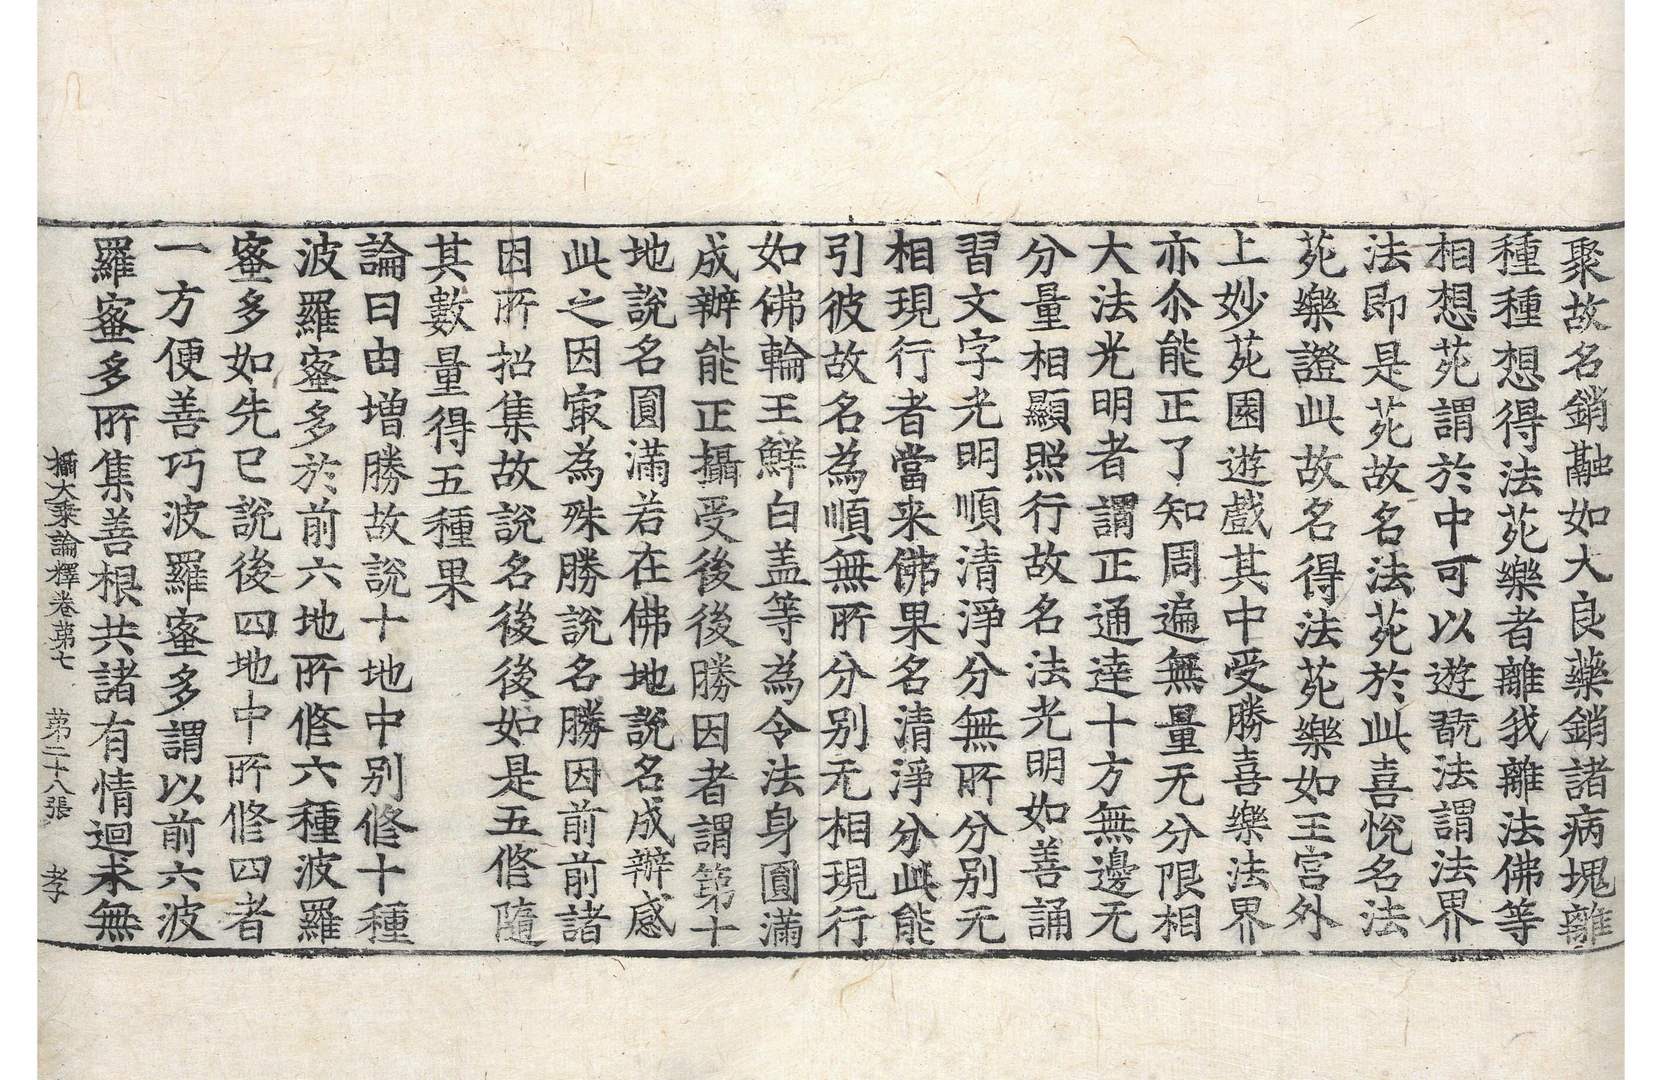 聚故名銷融如大良藥銷諸病塊離
種種想得法苑樂者離我離法佛等
相想苑謂於中可以遊翫法謂法界
法即是苑故名法苑於此喜悅名法
苑樂證此故名得法苑樂如王宮外
上妙苑園遊戲其中受勝喜樂法界
亦尒能正了知周遍無量无分限相
大法光明者謂正通達十方無邊无
分量相顯照行故名法光明如善誦
習文字光明順清淨分無所分别无
相現行者當来佛果名清淨分此能
引彼故名為順無所分别无相現行
如佛輪王鮮白盖等為令法身圓滿
成辦能正攝受後後勝因者謂第十
地說名圓滿若在佛地說名成辦感
此之因㝡為殊勝說名勝因前前諸
因所招集故說名後後如是五修隨
其數量得五種果
論曰由增勝故說十地中别修十種
波羅蜜多於前六地所修六種波羅
蜜多如先已說後四地中所修四者
一方便善巧波羅蜜多謂以前六波
羅蜜多所集善根共諸有情迴求無
攝大乘論釋卷第七 第二十八張 孝